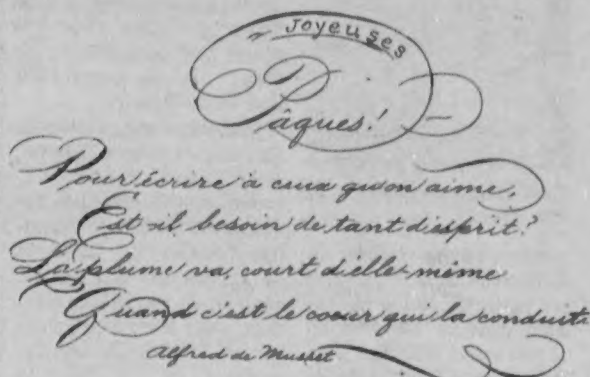 Joyeuses
Pâques!
Pour écrire à ceux qu'on aime,
Est-il besoin de tant d'esprit?
La plume va, court d'elle-même
Quand c'est le coeur qui la conduit.
Alfred de Musset